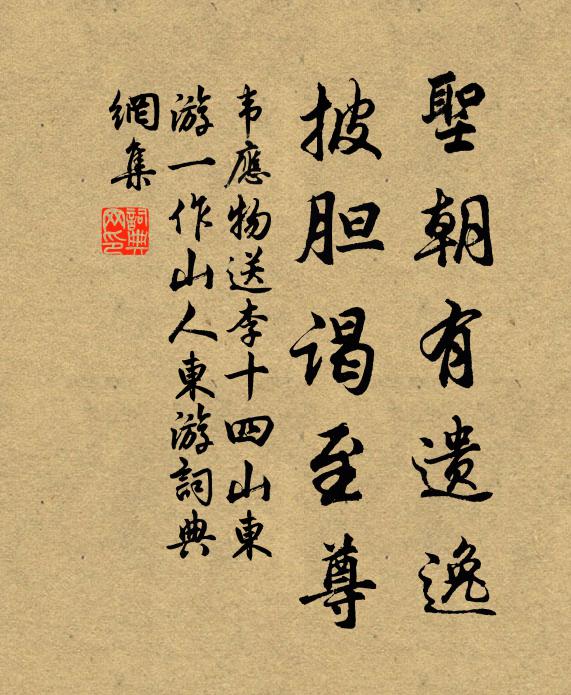 聖朝有遗逸
披胆谒至尊
韦應物送李十四山東
游一作山人東游詞典
網集
詞典
网印